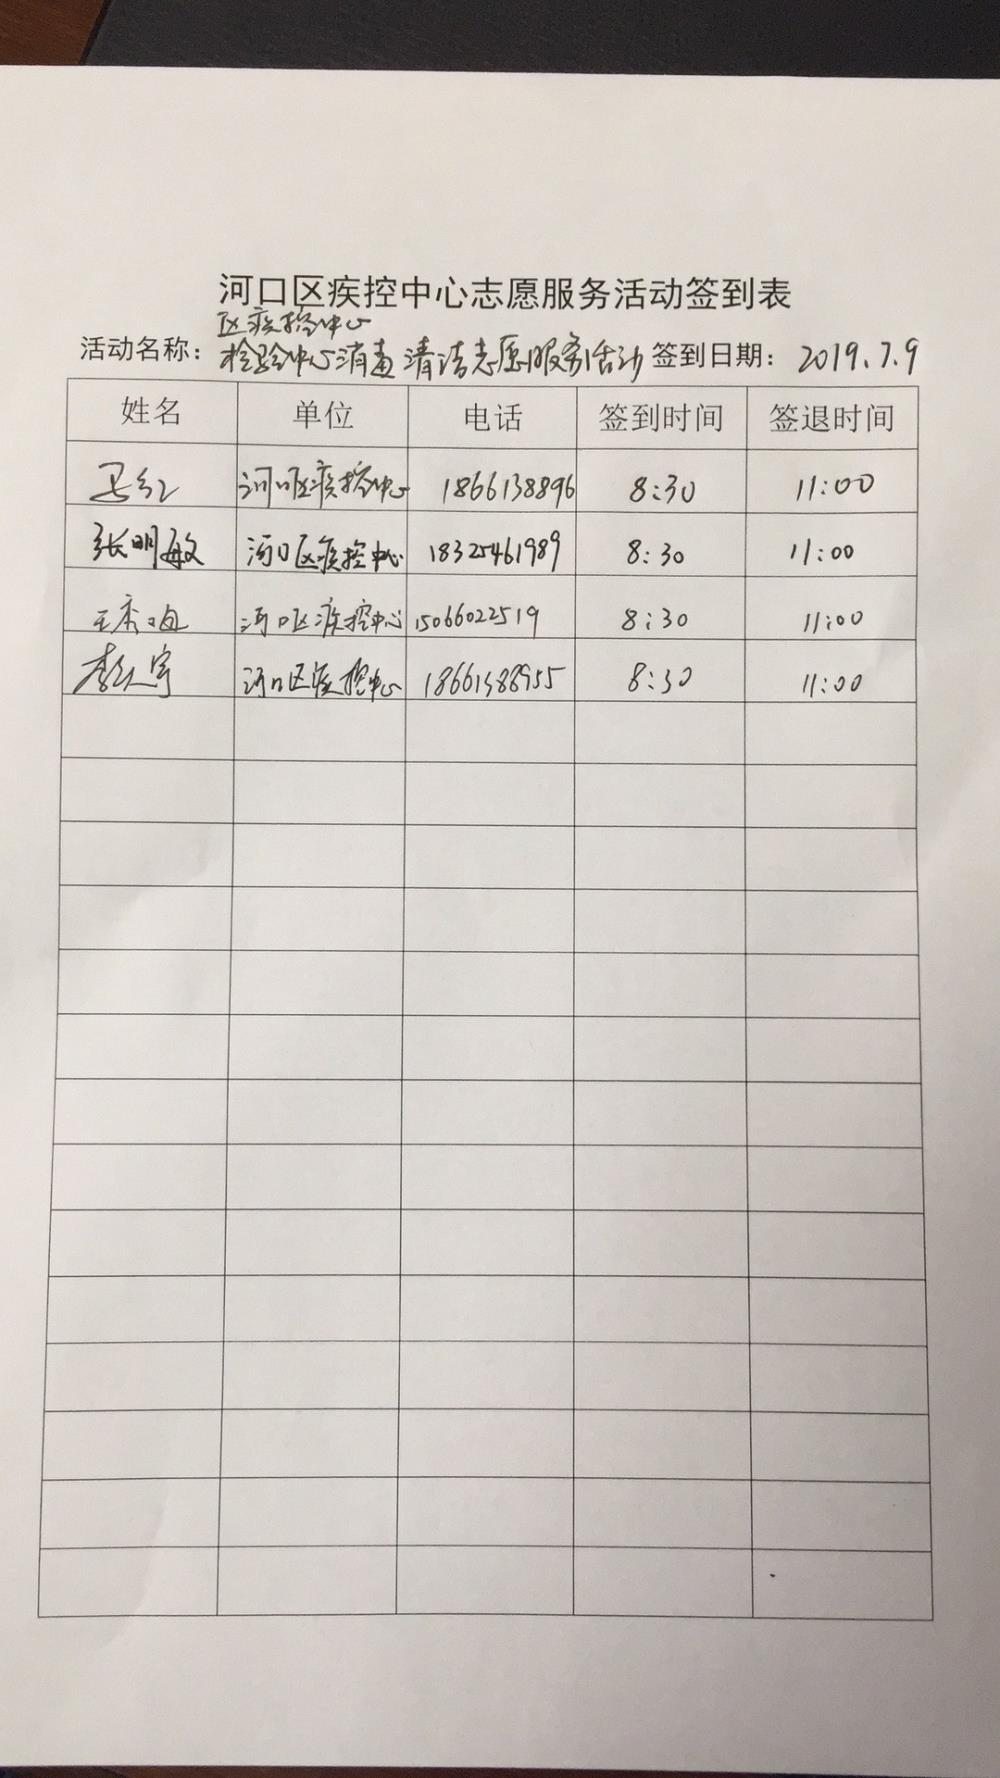 河口区疾控中心志愿服务活动签到表
区疾控中心
活动名称：检验中心消毒清洁志愿服务活动 签到日期：2019.7.9
姓名 单位 电话 签到时间 签退时间
河口区疾控中心 1866138896 8:30 11:00
张明敏 河口区疾控中心 18325461989 8:30 11:00
河口区疾控中心 15066022519 8:30 11:00
河口区疾控中心 18661388955 8:30 11:00